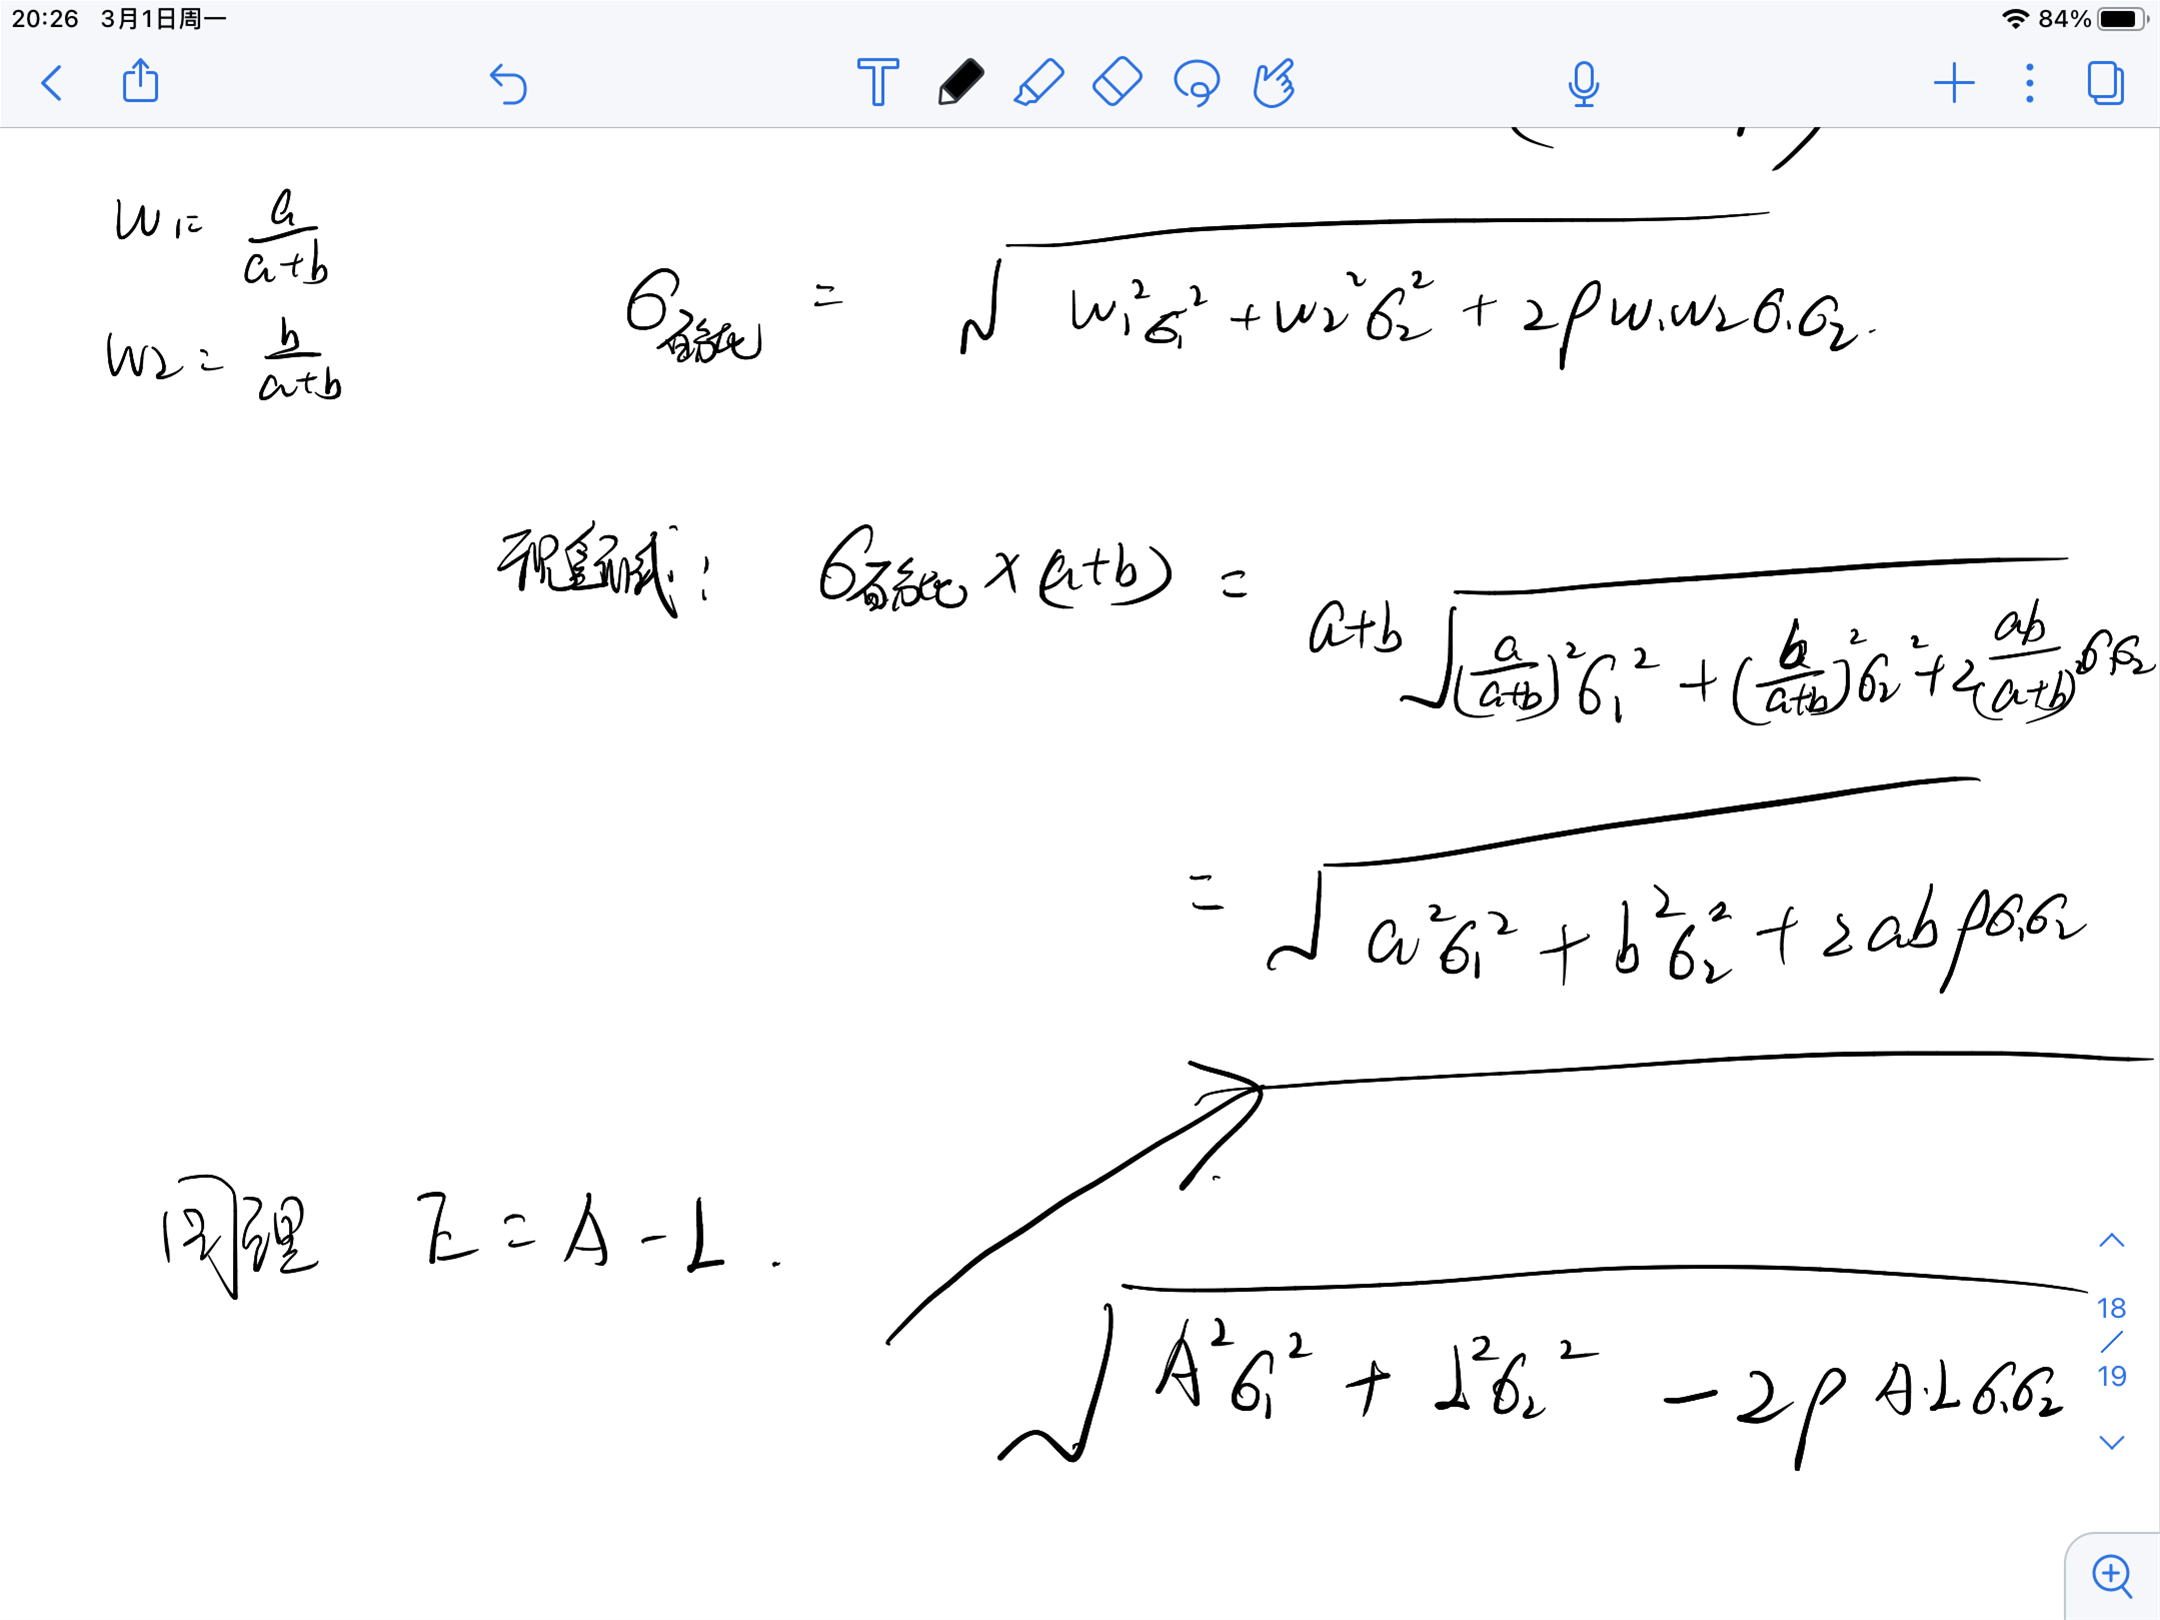 20:26 3月1日周一 84%
W₁ = a/(a+b)
W₂ = b/(a+b)
σ百分比 = √(W₁²σ₁² + W₂²σ₂² + 2ρW₁W₂σ₁σ₂).
σ百分比 × (a+b) = a+b √((a/(a+b))²σ₁² + (b/(a+b))²σ₂² + 2 ab/(a+b)² σ₁σ₂
= √(a²σ₁² + b²σ₂² + 2abρσ₁σ₂
同理 E = A - L.
√(A²σ₁² + L²σ₂² - 2ρA·Lσ₁σ₂
18
/
19